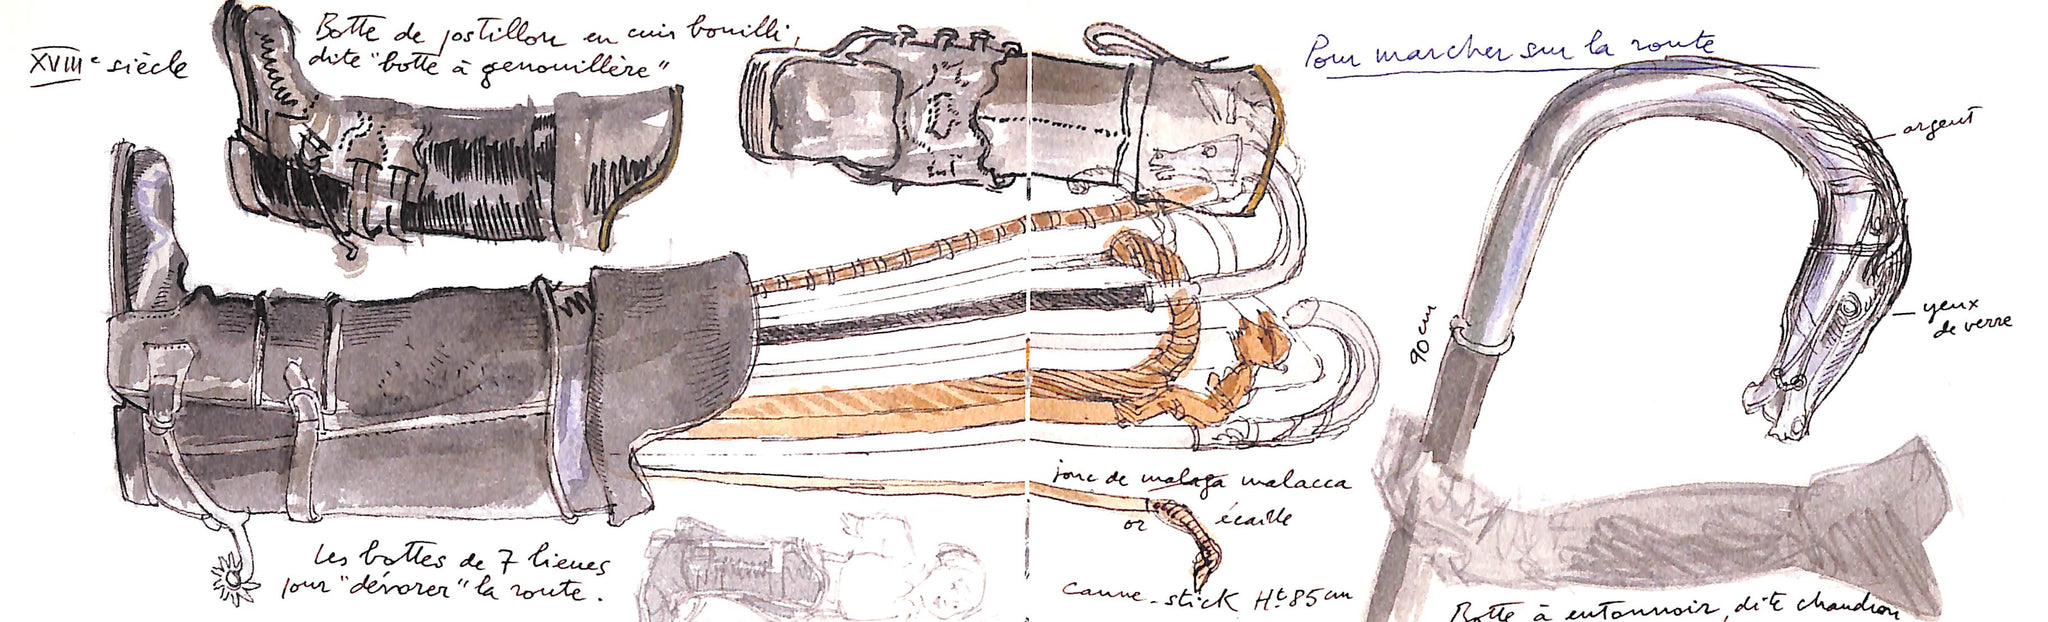 XVIIIe siècle
Botte de postillon en cuir bouilli,
dite "botte à genouillère"
Pour marcher sur la route
argent
yeux
de verre
90 cm
jonc de malaga malacca
or écaille
Canne-stick Ht 85 cm
Les bottes de 7 lieues
pour "dévorer" la route.
Botte à entonnoir, dite chaudron